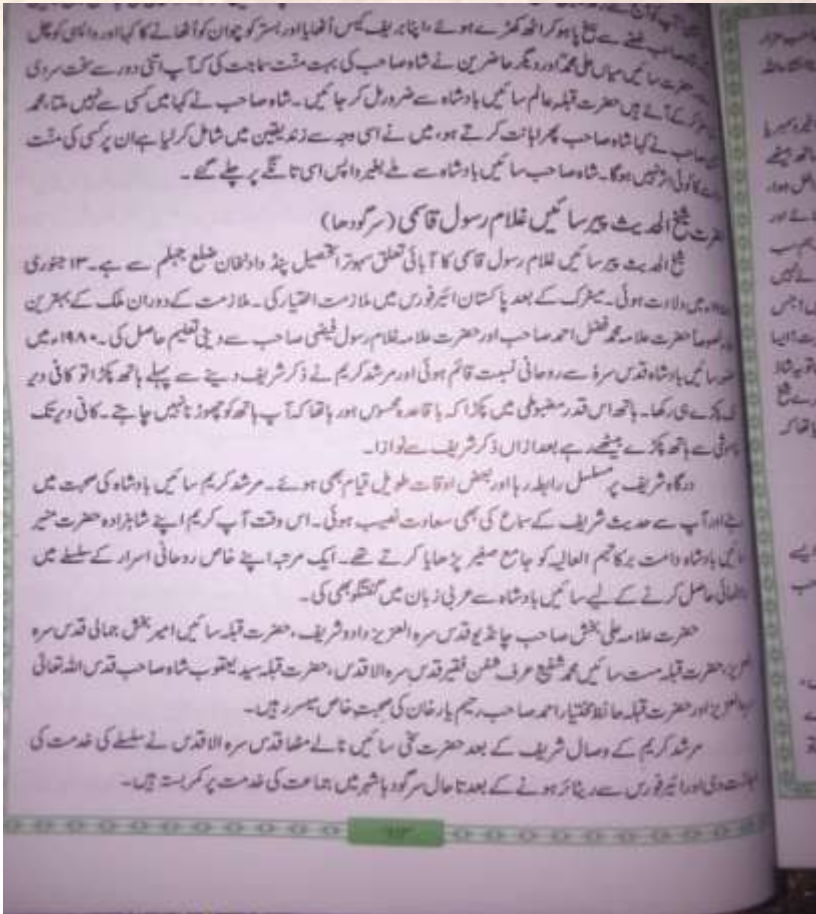 صاحب غصے سے سیخ پا ہو کر اٹھ کھڑے ہوئے، اپنا بریف کیس اُٹھایا اور بستر کوچوان کو اُٹھانے کا کہا اور واپسی کو چل
حضرت سائیں میاں علی محمد اور دیگر حاضرین نے شاہ صاحب کی بہت منّت سماجت کی کہ آپ اتنی دور سے سخت سردی
کر کے آئے ہیں حضرت قبلہ عالم سائیں بادشاہ سے ضرور مل کر جائیں۔ شاہ صاحب نے کہا میں کسی سے نہیں ملتا، محمد
صاحب نے کہا شاہ صاحب پھر اہانت کرتے ہو، میں نے اسی وجہ سے زندیقین میں شامل کر لیا ہے ان پر کسی کی منّت
کا کوئی اثر نہیں ہوگا۔ شاہ صاحب سائیں بادشاہ سے ملے بغیر واپس اسی تانگے پر چلے گئے۔
حضرت شیخ الحدیث پیر سائیں غلام رسول قاسمی (سرگودھا)
شیخ الحدیث پیر سائیں غلام رسول قاسمی کا آبائی تعلق تحصیل پنڈ دادنخان ضلع جہلم سے ہے۔ ۱۳ جنوری
میں ولادت ہوئی۔ میٹرک کے بعد پاکستان ائیرفورس میں ملازمت اختیار کی۔ ملازمت کے دوران ملک کے بہترین
خصوصاً حضرت علامہ محمد فضل احمد صاحب اور حضرت علامہ غلام رسول فیضی صاحب سے دینی تعلیم حاصل کی۔ ۱۹۸۰ء میں
سائیں بادشاہ قدس سرہٗ سے روحانی نسبت قائم ہوئی اور مرشد کریم نے ذکر شریف دینے سے پہلے ہاتھ پکڑا تو کافی دیر
پکڑے ہی رکھا۔ ہاتھ اس قدر مضبوطی میں پکڑا کہ باقاعدہ محسوس ہو رہا تھا کہ آپ ہاتھ کو چھوڑنا نہیں چاہتے۔ کافی دیر تک
خاموشی سے ہاتھ پکڑے بیٹھے رہے بعد ازاں ذکر شریف سے نوازا۔
درگاہ شریف پر مسلسل رابطہ رہا اور بعض اوقات طویل قیام بھی ہوئے۔ مرشد کریم سائیں بادشاہ کی صحبت میں
اور آپ سے حدیث شریف کے سماع کی بھی سعادت نصیب ہوئی۔ اس وقت آپ کریم اپنے شاہزادہ حضرت منیر
سائیں بادشاہ دامت برکاتہم العالیہ کو جامع صغیر پڑھایا کرتے تھے۔ ایک مرتبہ اپنے خاص روحانی اسرار کے سلسلے میں
راہنمائی حاصل کرنے کے لیے سائیں بادشاہ سے عربی زبان میں گفتگو بھی کی۔
حضرت علامہ علی بخش صاحب چانڈیو قدس سرہ العزیز دادو شریف، حضرت قبلہ سائیں امیر بخش جمالی قدس سرہ
العزیز، حضرت قبلہ مست سائیں محمد شفیع عرف فقیر قدس سرہ الاقدس، حضرت قبلہ سید یعقوب شاہ صاحب قدس اللہ تعالیٰ
سرہ العزیز اور حضرت قبلہ حافظ مختیار احمد صاحب رحیم یار خان کی صحبتِ خاص میسر رہیں۔
مرشد کریم کے وصال شریف کے بعد حضرت سخی سائیں نالے مٹھا قدس سرہ الاقدس نے سلسلے کی خدمت کی
اجازت دی اور ائیرفورس سے ریٹائر ہونے کے بعد تاحال سرگودہا شہر میں جماعت کی خدمت پر کمربستہ ہیں۔